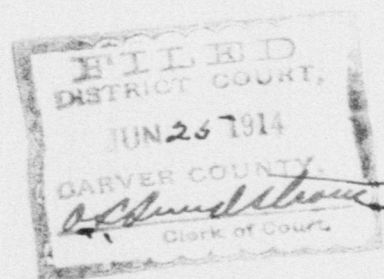 FILED
DISTRICT COURT,
JUN 25 1914
CARVER COUNTY,
Clerk of Court.